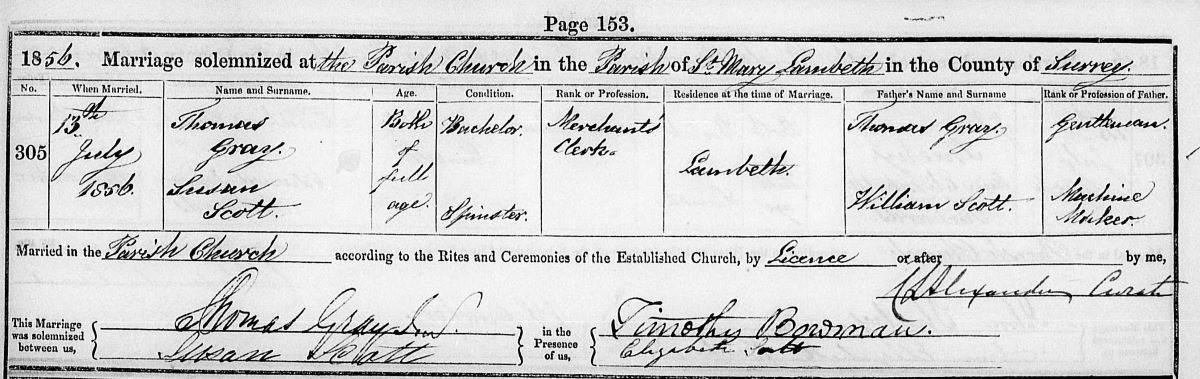 Page 153.
1856. Marriage solemnized at the Parish Church in the Parish of St Mary Lambeth in the County of Surrey.
No. When Married. Name and Surname. Age. Condition. Rank or Profession. Residence at the time of Marriage. Father's Name and Surname Rank or Profession of Father.
305
13th
July
1856.
Thomas
Gray.
Susan
Scott.
Both
of
full
age.
Bachelor.
Spinster.
Merchant's
Clerk.
Lambeth.
Thomas Gray.
William Scott.
Gentleman.
Machine
Maker.
Married in the Parish Church according to the Rites and Ceremonies of the Established Church, by Licence or after by me,
Alexander Curate
This Marriage
was solemnized
between us,
Thomas Gray
Susan Scott
in the
Presence
of us,
Timothy Bowman.
Elizabeth